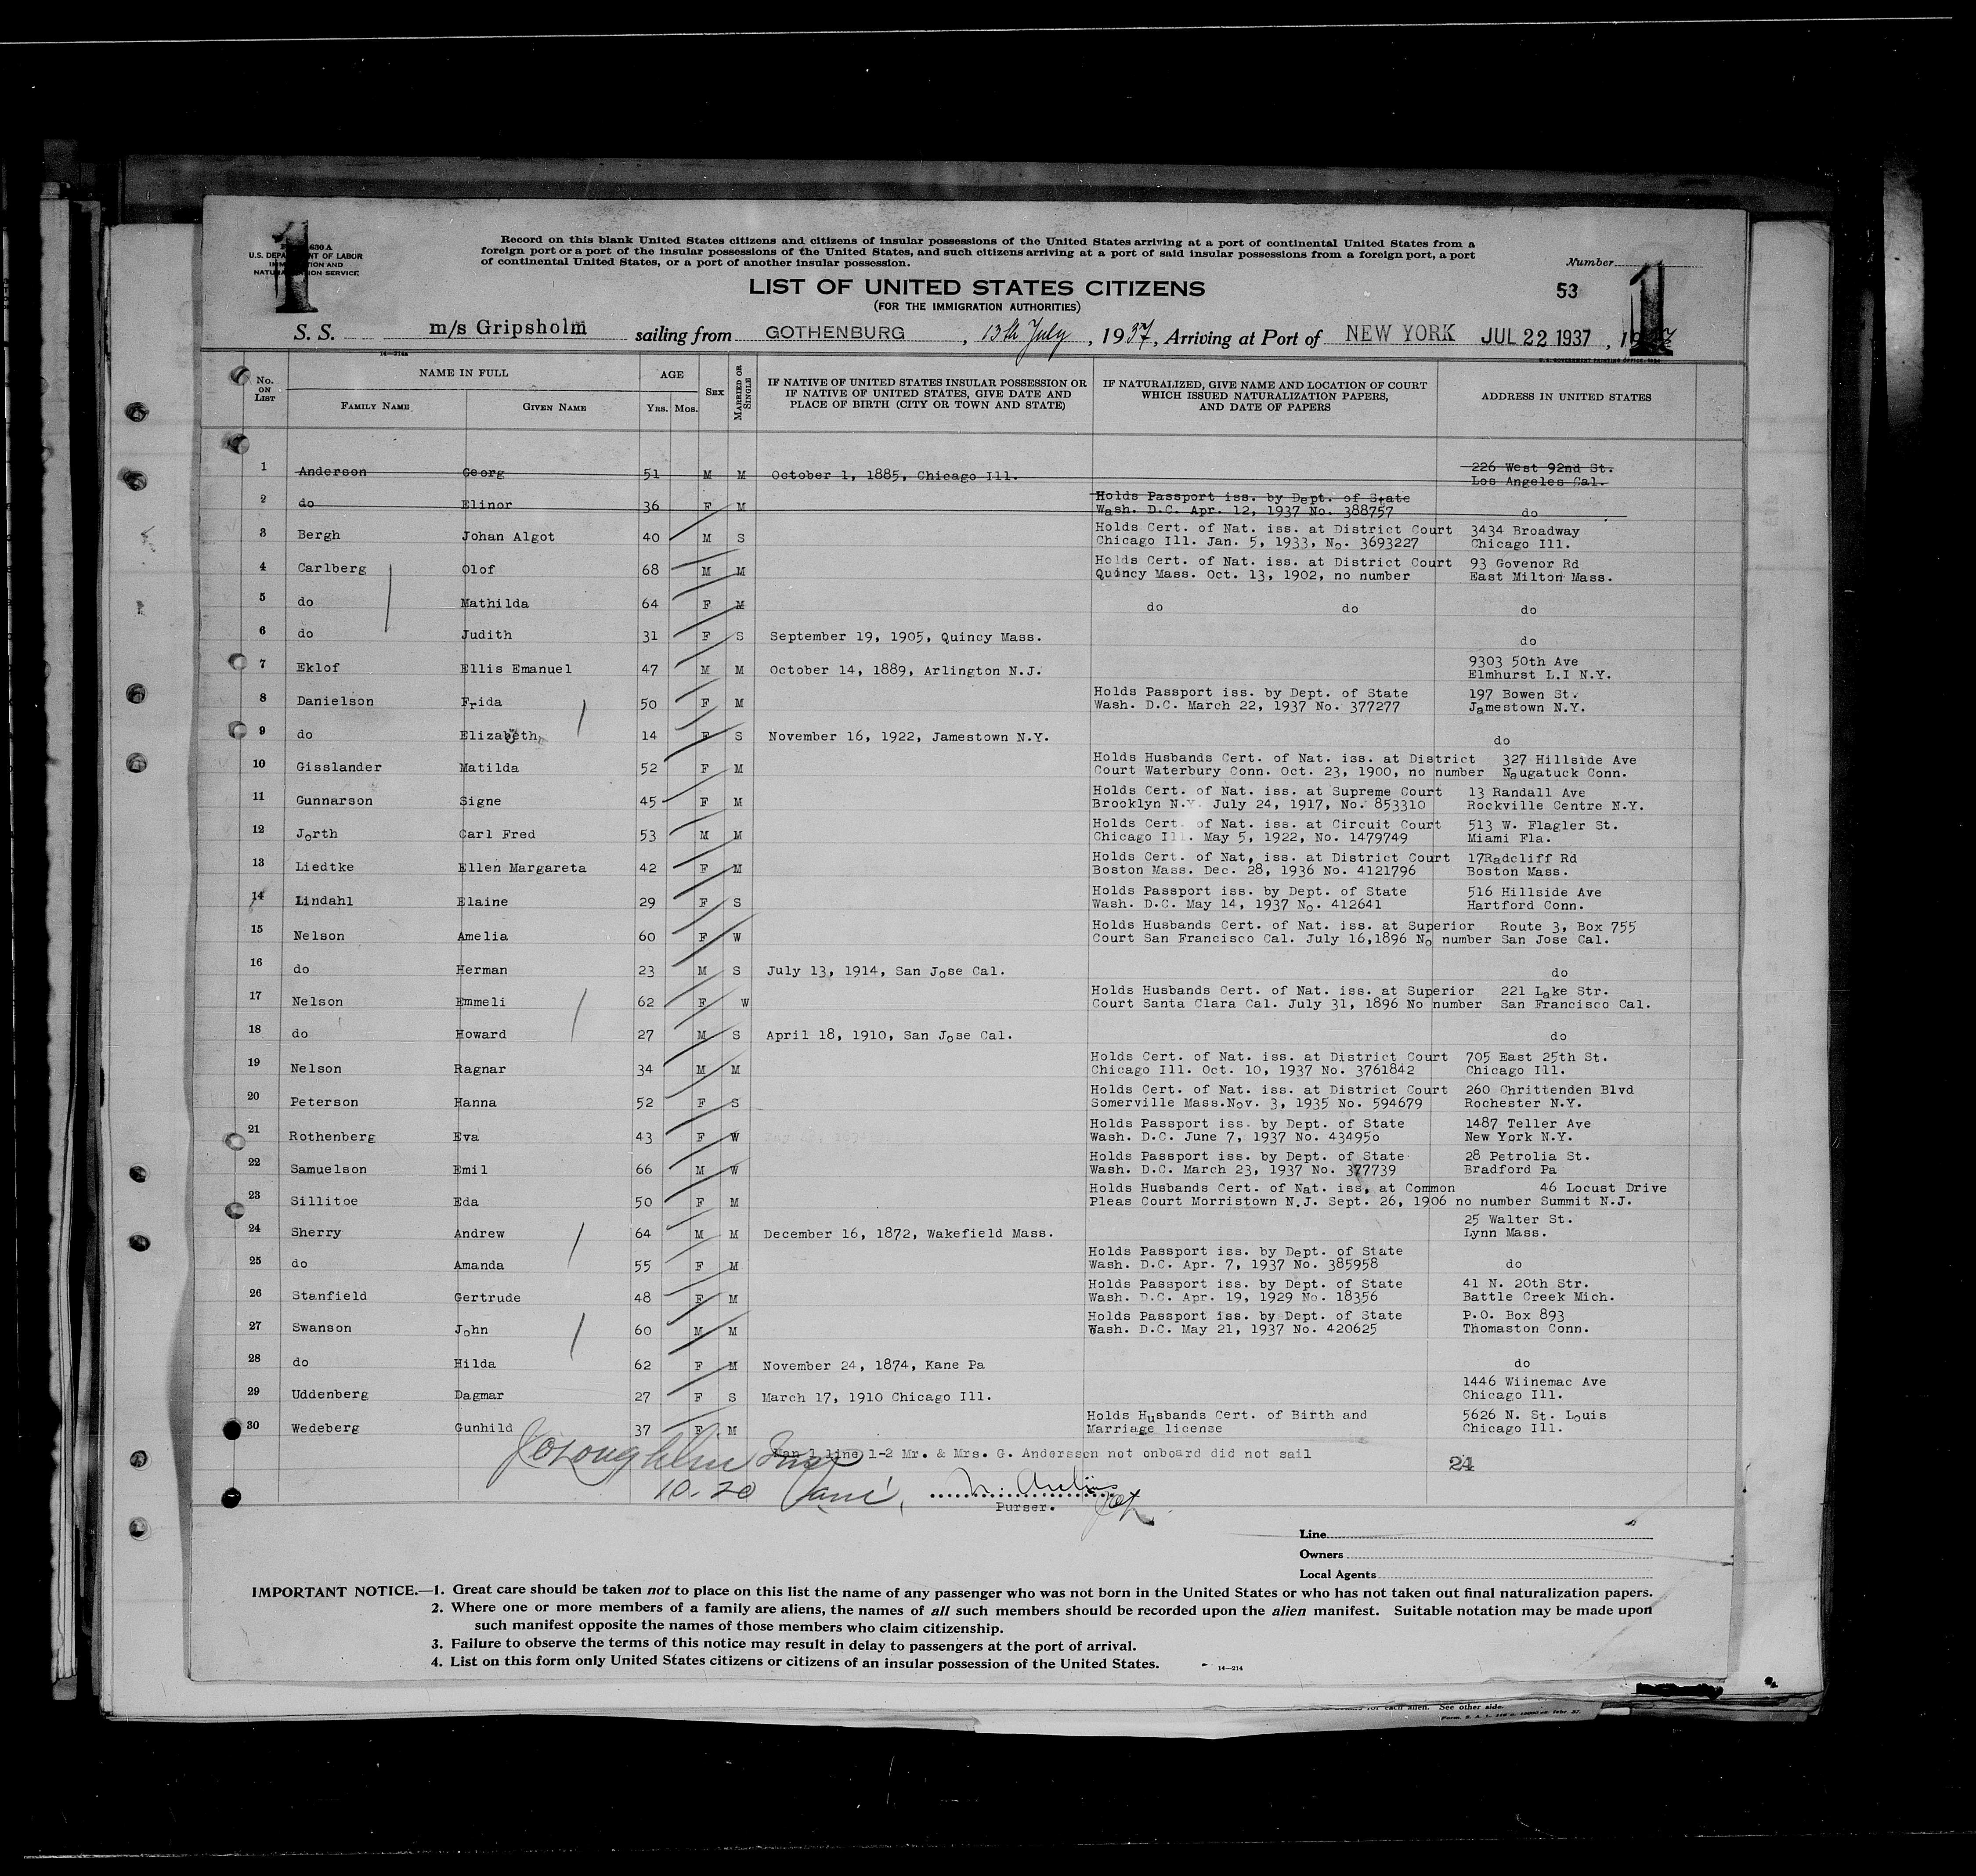 Record on this blank United States citizens and citizens of insular possessions of the United States arriving at a port of continental United States from a
foreign port or a port of the insular possessions of the United States, and such citizens arriving at a port of said insular possessions from a foreign port, a port
of continental United States, or a port of another insular possession.
630 A
U.S. DEPARTMENT OF LABOR
IMMIGRATION AND
NATURALIZATION SERVICE
1
Number
53
1
LIST OF UNITED STATES CITIZENS
(FOR THE IMMIGRATION AUTHORITIES)
S. S. m/s Gripsholm sailing from GOTHENBURG , 13th July , 1937, Arriving at Port of NEW YORK JUL 22 1937 , 1937
No. ON LIST
NAME IN FULL
FAMILY NAME GIVEN NAME
AGE
YRS. MOS.
SEX
MARRIED OR SINGLE
IF NATIVE OF UNITED STATES INSULAR POSSESSION OR
IF NATIVE OF UNITED STATES, GIVE DATE AND
PLACE OF BIRTH (CITY OR TOWN AND STATE)
IF NATURALIZED, GIVE NAME AND LOCATION OF COURT
WHICH ISSUED NATURALIZATION PAPERS,
AND DATE OF PAPERS
ADDRESS IN UNITED STATES
1 Anderson Georg 51 M M October 1, 1885, Chicago Ill. 226 West 92nd St.
Los Angeles Cal.
2 do Elinor 36 F M Holds Passport iss. by Dept. of State
Wash. D.C. Apr. 12, 1937 No. 388757 do
3 Bergh Johan Algot 40 M S Holds Cert. of Nat. iss. at District Court 3434 Broadway
Chicago Ill. Jan. 5, 1933, No. 3693227 Chicago Ill.
4 Carlberg Olof 68 M M Holds Cert. of Nat. iss. at District Court 93 Govenor Rd
Quincy Mass. Oct. 13, 1902, no number East Milton Mass.
5 do Mathilda 64 F M do do do
6 do Judith 31 F S September 19, 1905, Quincy Mass. do
7 Eklof Ellis Emanuel 47 M M October 14, 1889, Arlington N.J. 9303 50th Ave
Elmhurst L.I N.Y.
8 Danielson Frida 50 F M Holds Passport iss. by Dept. of State 197 Bowen St.
Wash. D.C. March 22, 1937 No. 377277 Jamestown N.Y.
9 do Elizabeth 14 F S November 16, 1922, Jamestown N.Y. do
10 Gisslander Matilda 52 F M Holds Husbands Cert. of Nat. iss. at District 327 Hillside Ave
Court Waterbury Conn. Oct. 23, 1900, no number Naugatuck Conn.
11 Gunnarson Signe 45 F M Holds Cert. of Nat. iss. at Supreme Court 13 Randall Ave
Brooklyn N.Y. July 24, 1917, No. 853310 Rockville Centre N.Y.
12 Jorth Carl Fred 53 M M Holds Cert. of Nat. iss. at Circuit Court 513 W. Flagler St.
Chicago Ill. May 5, 1922, No. 1479749 Miami Fla.
13 Liedtke Ellen Margareta 42 F M Holds Cert. of Nat, iss. at District Court 17Radcliff Rd
Boston Mass. Dec. 28, 1936 No. 4121796 Boston Mass.
14 Lindahl Elaine 29 F S Holds Passport iss. by Dept. of State 516 Hillside Ave
Wash. D.C. May 14, 1937 No. 412641 Hartford Conn.
15 Nelson Amelia 60 F W Holds Husbands Cert. of Nat. iss. at Superior Route 3, Box 755
Court San Francisco Cal. July 16,1896 No number San Jose Cal.
16 do Herman 23 M S July 13, 1914, San Jose Cal. do
17 Nelson Emmeli 62 F W Holds Husbands Cert. of Nat. iss. at Superior 221 Lake Str.
Court Santa Clara Cal. July 31, 1896 No number San Francisco Cal.
18 do Howard 27 M S April 18, 1910, San Jose Cal. do
19 Nelson Ragnar 34 M M Holds Cert. of Nat. iss. at District Court 705 East 25th St.
Chicago Ill. Oct. 10, 1937 No. 3761842 Chicago Ill.
20 Peterson Hanna 52 F S Holds Cert. of Nat. iss. at District Court 260 Chrittenden Blvd
Somerville Mass.Nov. 3, 1935 No. 594679 Rochester N.Y.
21 Rothenberg Eva 43 F W Holds Passport iss. by Dept. of State 1487 Teller Ave
Wash. D.C. June 7, 1937 No. 434950 New York N.Y.
22 Samuelson Emil 66 M W Holds Passport iss. by Dept. of State 28 Petrolia St.
Wash. D.C. March 23, 1937 No. 377739 Bradford Pa
23 Sillitoe Eda 50 F M Holds Husbands Cert. of Nat. iss, at Common 46 Locust Drive
Pleas Court Morristown N.J. Sept. 26, 1906 no number Summit N.J.
24 Sherry Andrew 64 M M December 16, 1872, Wakefield Mass. 25 Walter St.
Lynn Mass.
25 do Amanda 55 F M Holds Passport iss. by Dept. of State
Wash. D.C. Apr. 7, 1937 No. 385958 do
26 Stanfield Gertrude 48 F M Holds Passport iss. by Dept. of State 41 N. 20th Str.
Wash. D.C. Apr. 19, 1929 No. 18356 Battle Creek Mich.
27 Swanson John 60 M M Holds Passport iss. by Dept. of State P.O. Box 893
Wash. D.C. May 21, 1937 No. 420625 Thomaston Conn.
28 do Hilda 62 F M November 24, 1874, Kane Pa do
29 Uddenberg Dagmar 27 F S March 17, 1910 Chicago Ill. 1446 Wiinemac Ave
Chicago Ill.
30 Wedeberg Gunhild 37 F M Holds Husbands Cert. of Birth and 5626 N. St. Louis
Marriage license Chicago Ill.
line 1-2 Mr. & Mrs. G. Andersson not onboard did not sail
24
10-20
Purser.
Line
Owners
Local Agents
IMPORTANT NOTICE.—1. Great care should be taken not to place on this list the name of any passenger who was not born in the United States or who has not taken out final naturalization papers.
2. Where one or more members of a family are aliens, the names of all such members should be recorded upon the alien manifest. Suitable notation may be made upon
such manifest opposite the names of those members who claim citizenship.
3. Failure to observe the terms of this notice may result in delay to passengers at the port of arrival.
4. List on this form only United States citizens or citizens of an insular possession of the United States.
14—214
for each alien. See other side.